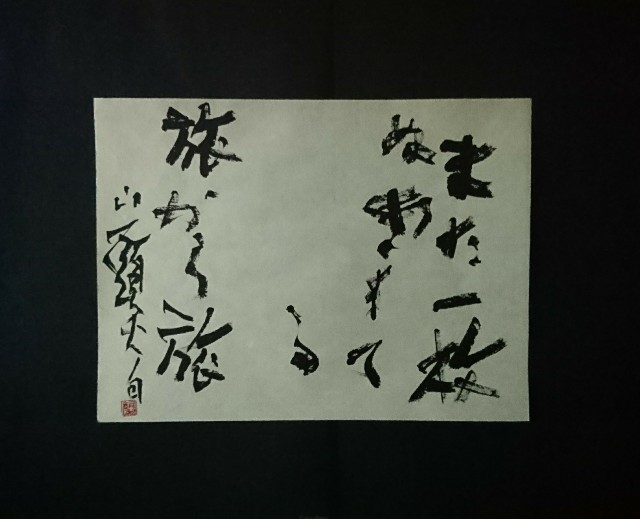 また一枚
ぬぎすて
る
旅から旅
山頭火